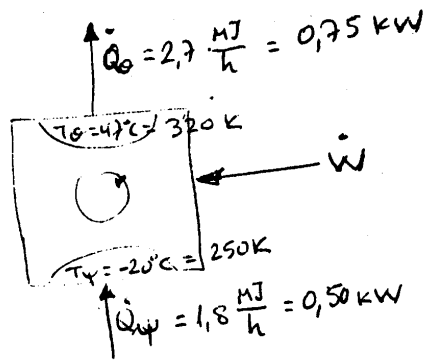 Q̇θ = 2,7 · MJ/h = 0,75 kW
Tθ = 47°C = 320 K
Ẇ
Tψ = -20°C = 250K
Q̇ψ = 1,8 MJ/h = 0,50 kW